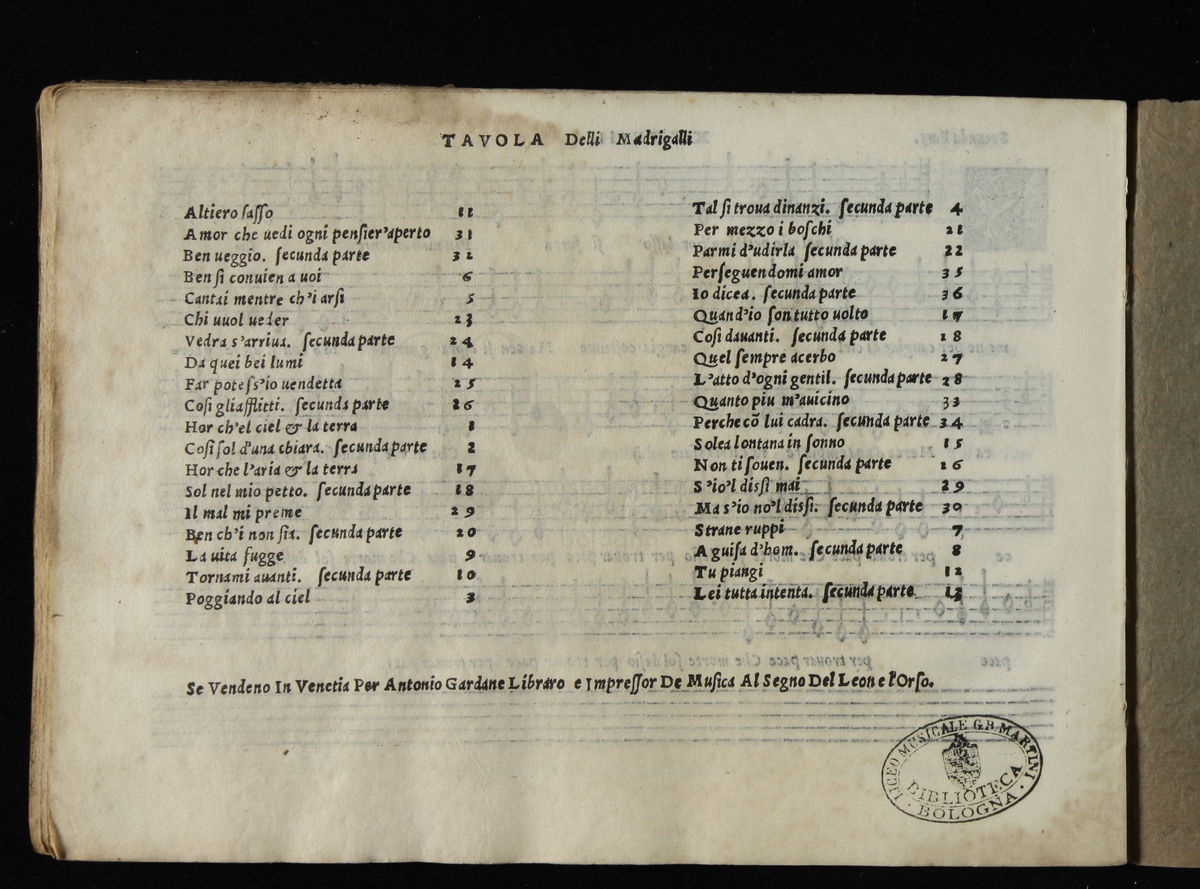 TAVOLA Delli Madrigalli
Altiero sasso 11
Amor che uedi ogni pensier'aperto 31
Ben ueggio. secunda parte 32
Ben si conuien a uoi 6
Cantai mentre ch'i arsi 5
Chi uuol ueder 23
Vedra s'arriua. secunda parte 24
Da quei bei lumi 14
Far potess'io uendetta 25
Cosi gliafflitti. secunda parte 26
Hor ch'el ciel & la terra 1
Cosi sol d'una chiara. secunda parte 2
Hor che l'aria & la terra 17
Sol nel mio petto. secunda parte 18
Il mal mi preme 29
Ben ch'i non sia. secunda parte 20
La uita fugge 9
Tornami auanti. secunda parte 10
Poggiando al ciel 3
Tal si troua dinanzi. secunda parte 4
Per mezzo i boschi 21
Parmi d'udirla secunda parte 22
Perseguendomi amor 35
Io dicea. secunda parte 36
Quand'io son tutto uolto 17
Cosi dauanti. secunda parte 18
Quel sempre acerbo 27
L'atto d'ogni gentil. secunda parte 28
Quanto piu m'auicino 33
Perche cō lui cadra. secunda parte 34
Solea lontana in sonno 15
Non ti souen. secunda parte 16
S'io'l dissi mai 29
Ma s'io no'l dissi. secunda parte 30
Strane ruppi 7
A guisa d'hom. secunda parte 8
Tu piangi 12
Lei tutta intenta. secunda parte 13
Se Vendeno In Venetia Per Antonio Gardane Libraro e Impressor De Musica Al Segno Del Leon e l'Orso.
LICEO MUSICALE G.B. MARTINI
BIBLIOTECA
BOLOGNA